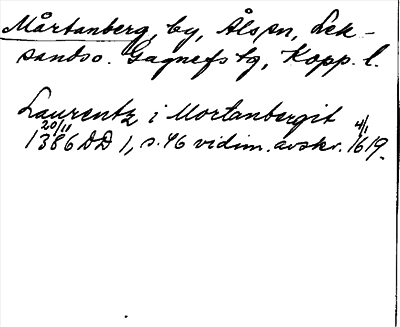 Mårtanberg, by, Ål sn, Lek-
sands o. Gagnefs tg, Kopp. l.
Laurentz i Mortanbergit
20/11 1386 DD 1, s. 46 vidim. avskr. 4/1 1619.